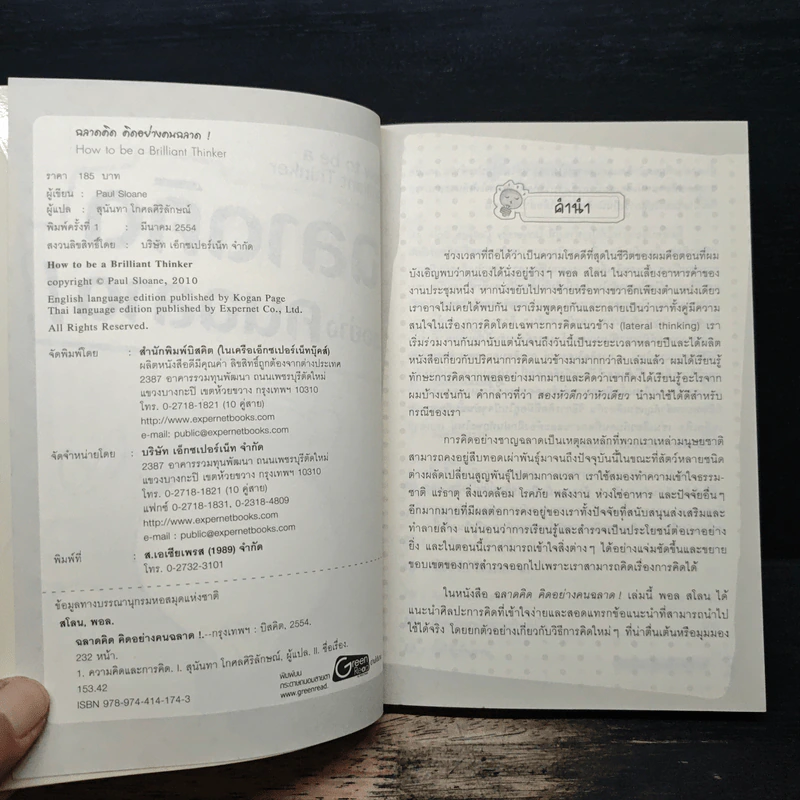 ฉลาดคิด คิดอย่างคนฉลาด !
How to be a Brilliant Thinker
ราคา 185 บาท
ผู้เขียน : Paul Sloane
ผู้แปล : สุนันทา โกศลศิริลักษณ์
พิมพ์ครั้งที่ 1 : มีนาคม 2554
สงวนลิขสิทธิ์โดย : บริษัท เอ็กซเปอร์เน็ท จำกัด
How to be a Brilliant Thinker
copyright © Paul Sloane, 2010
English language edition published by Kogan Page
Thai language edition published by Expernet Co., Ltd.
All Rights Reserved.
จัดพิมพ์โดย : สำนักพิมพ์บิสคิต (ในเครือเอ็กซเปอร์เน็ทบุ๊คส์)
ผลิตหนังสือดีมีคุณค่า ลิขสิทธิ์ถูกต้องจากต่างประเทศ
2387 อาคารรวมทุนพัฒนา ถนนเพชรบุรีตัดใหม่
แขวงบางกะปิ เขตห้วยขวาง กรุงเทพฯ 10310
โทร. 0-2718-1821 (10 คู่สาย)
http://www.expernetbooks.com
e-mail: public@expernetbooks.com
จัดจำหน่ายโดย : บริษัท เอ็กซเปอร์เน็ท จำกัด
2387 อาคารรวมทุนพัฒนา ถนนเพชรบุรีตัดใหม่
แขวงบางกะปิ เขตห้วยขวาง กรุงเทพฯ 10310
โทร. 0-2718-1821 (10 คู่สาย)
แฟกซ์ 0-2718-1831, 0-2318-4809
http://www.expernetbooks.com
e-mail: public@expernetbooks.com
พิมพ์ที่ : ส.เอเซียเพรส (1989) จำกัด
โทร. 0-2732-3101
ข้อมูลทางบรรณานุกรมหอสมุดแห่งชาติ
สโลน, พอล.
ฉลาดคิด คิดอย่างคนฉลาด !.--กรุงเทพฯ : บิสคิต, 2554.
232 หน้า.
1. ความคิดและการคิด. I. สุนันทา โกศลศิริลักษณ์, ผู้แปล. II. ชื่อเรื่อง.
153.42
ISBN 978-974-414-174-3
พิมพ์บน
กระดาษถนอมสายตา
www.greenread.
Green
Read
คำนำ
ช่วงเวลาที่ถือได้ว่าเป็นความโชคดีที่สุดในชีวิตของผมคือตอนที่ผม
บังเอิญพบว่าตนเองได้นั่งอยู่ข้างๆ พอล สโลน ในงานเลี้ยงอาหารค่ำของ
งานประชุมหนึ่ง หากนั่งขยับไปทางซ้ายหรือทางขวาอีกเพียงตำแหน่งเดียว
เราอาจไม่เคยได้พบกัน เราเริ่มพูดคุยกันและกลายเป็นว่าเราทั้งคู่มีความ
สนใจในเรื่องการคิดโดยเฉพาะการคิดแนวข้าง (lateral thinking) เรา
เริ่มร่วมงานกันมานับแต่นั้นจนถึงวันนี้เป็นระยะเวลาหลายปีและได้ผลิต
หนังสือเกี่ยวกับปริศนาการคิดแนวข้างมามากกว่าสิบเล่มแล้ว ผมได้เรียนรู้
ทักษะการคิดจากพอลอย่างมากมายและคิดว่าเขาก็คงได้เรียนรู้อะไรจาก
ผมบ้างเช่นกัน คำกล่าวที่ว่า สองหัวดีกว่าหัวเดียว นำมาใช้ได้ดีสำหรับ
กรณีของเรา
การคิดอย่างชาญฉลาดเป็นเหตุผลหลักที่พวกเราเหล่ามนุษยชาติ
สามารถคงอยู่สืบทอดเผ่าพันธุ์มาจนถึงปัจจุบันนี้ในขณะที่สัตว์หลายชนิด
ต่างผลัดเปลี่ยนสูญพันธุ์ไปตามกาลเวลา เราใช้สมองทำความเข้าใจธรรม-
ชาติ แร่ธาตุ สิ่งแวดล้อม โรคภัย พลังงาน ห่วงโซ่อาหาร และปัจจัยอื่นๆ
อีกมากมายที่มีผลต่อการคงอยู่ของเราทั้งปัจจัยที่สนับสนุนส่งเสริมและ
ทำลายล้าง แน่นอนว่าการเรียนรู้และสำรวจเป็นประโยชน์ต่อเราอย่าง
ยิ่ง และในตอนนี้เราสามารถเข้าใจสิ่งต่างๆ ได้อย่างแจ่มชัดขึ้นและขยาย
ขอบเขตของการสำรวจออกไปเพราะเราสามารถคิดเรื่องการคิดได้
ในหนังสือ ฉลาดคิด คิดอย่างคนฉลาด ! เล่มนี้ พอล สโลน ได้
แนะนำศิลปะการคิดที่เข้าใจง่ายและสอดแทรกข้อแนะนำที่สามารถนำไป
ใช้ได้จริง โดยยกตัวอย่างเกี่ยวกับวิธีการคิดใหม่ๆ ที่น่าตื่นเต้นหรือมุมมอง